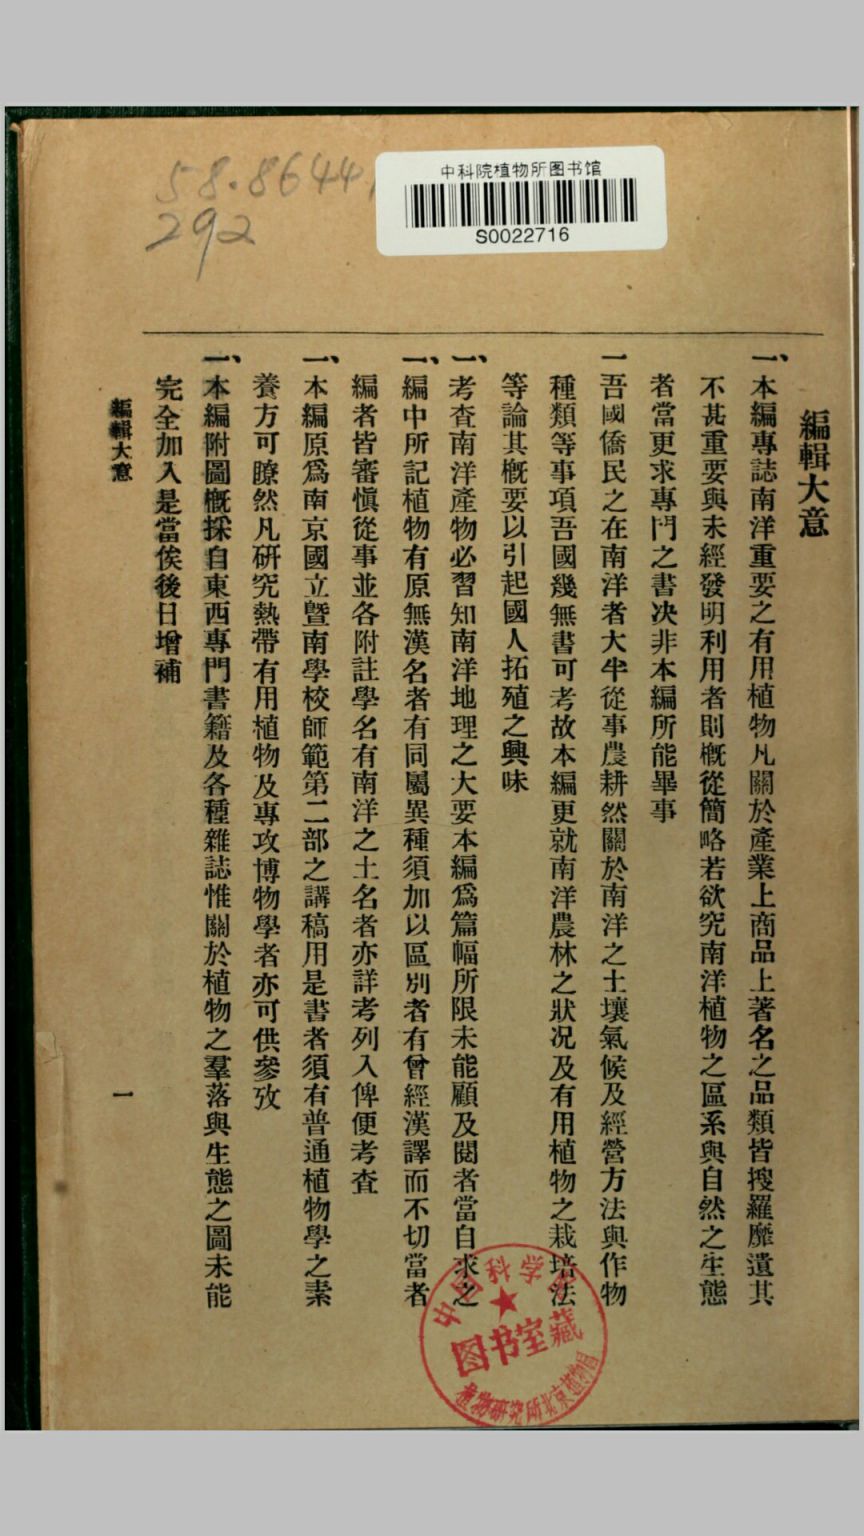 58.8644
292
中科院植物所图书馆
S0022716
編輯大意
一、本編專誌南洋重要之有用植物凡關於產業上商品上著名之品類皆搜羅靡遺其
不甚重要與未經發明利用者則概從簡略若欲究南洋植物之區系與自然之生態
者當更求專門之書决非本編所能畢事
一吾國僑民之在南洋者大半從事農耕然關於南洋之土壤氣候及經營方法與作物
種類等事項吾國幾無書可考故本編更就南洋農林之狀况及有用植物之栽培法
等論其概要以引起國人拓殖之興味
一、考查南洋產物必習知南洋地理之大要本編爲篇幅所限未能顧及閱者當自求之
一、編中所記植物有原無漢名者有同屬異種須加以區別者有曾經漢譯而不切當者
編者皆審愼從事並各附註學名有南洋之土名者亦詳考列入俾便考查
一、本編原爲南京國立暨南學校師範第二部之講稿用是書者須有普通植物學之素
養方可瞭然凡研究熱帶有用植物及專攻博物學者亦可供參攷
一、本編附圖概採自東西專門書籍及各種雜誌惟關於植物之羣落與生態之圖未能
完全加入是當俟後日增補
編輯大意
一
中国科学院
图书室藏
植物研究所北京植物园